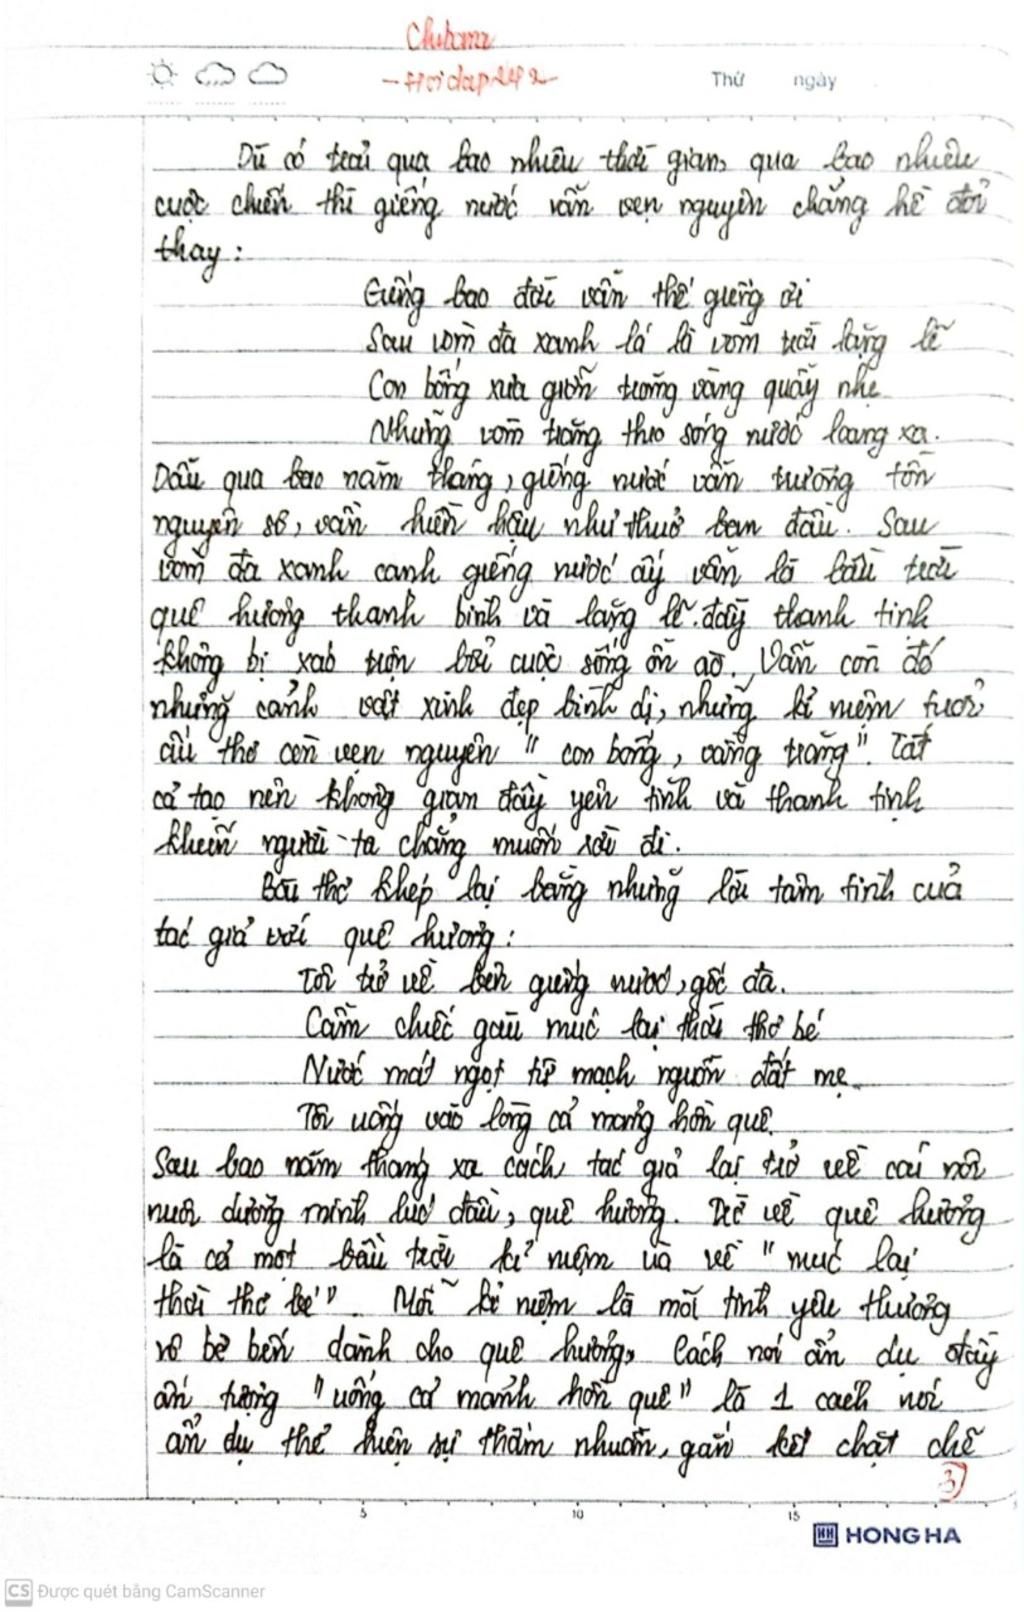 Chubama
- Hỏi đáp lớp 2 -
Thứ ngày
Dù có trải qua bao nhiêu thời gian, qua bao nhiêu
cuộc chiến thì giếng nước vẫn vẹn nguyên chẳng hề đổi
thay :
Giếng bao đời vẫn thế giếng ơi
Sau vòm đa xanh lá là vòm trời lặng lẽ
Con bống xưa giỡn trăng vàng quẫy nhẹ
Những vòm trăng theo sóng nước loang xa.
Dẫu qua bao năm tháng, giếng nước vẫn trường tồn
nguyên sơ, vẫn hiền hậu như thuở ban đầu. Sau
vòm đa xanh cạnh giếng nước ấy vẫn là bầu trời
quê hương thanh bình và lặng lẽ. đầy thanh tịnh
không bị xáo trộn bởi cuộc sống ồn ào. Vẫn còn đó
những cảnh vật xinh đẹp bình dị, những kỉ niệm tươi
thơ còn vẹn nguyên " con bống, vầng trăng". Tất
cả tạo nên không gian đầy yên tĩnh và thanh tịnh
khiến người ta chẳng muốn rời đi.
Bài thơ khép lại bằng những lời tâm tình của
tác giả với quê hương :
Tôi trở về bên giếng nước, gốc đa.
Cầm chiếc gàu múc lại thời thơ bé
Nước mát ngọt từ mạch nguồn đất mẹ
Tôi uống vào lòng cả mảng hồn quê.
Sau bao năm tháng xa cách, tác giả lại trở về cái nôi
nuôi dưỡng mình lúc đầu, quê hương. Trở về quê hương
là cả một bầu trời kỉ niệm ùa về " múc lại
thời thơ bé". Mỗi kỉ niệm là mối tình yêu thương
vô bờ bến dành cho quê hương, Cách nói ẩn dụ đầy
ấn tượng "uống cả mảnh hồn quê" là 1 cách nói
ẩn dụ thể hiện sự thấm nhuần, gắn kết chặt chẽ
3
5 10 15
HH HONG HA
CS Được quét bằng CamScanner